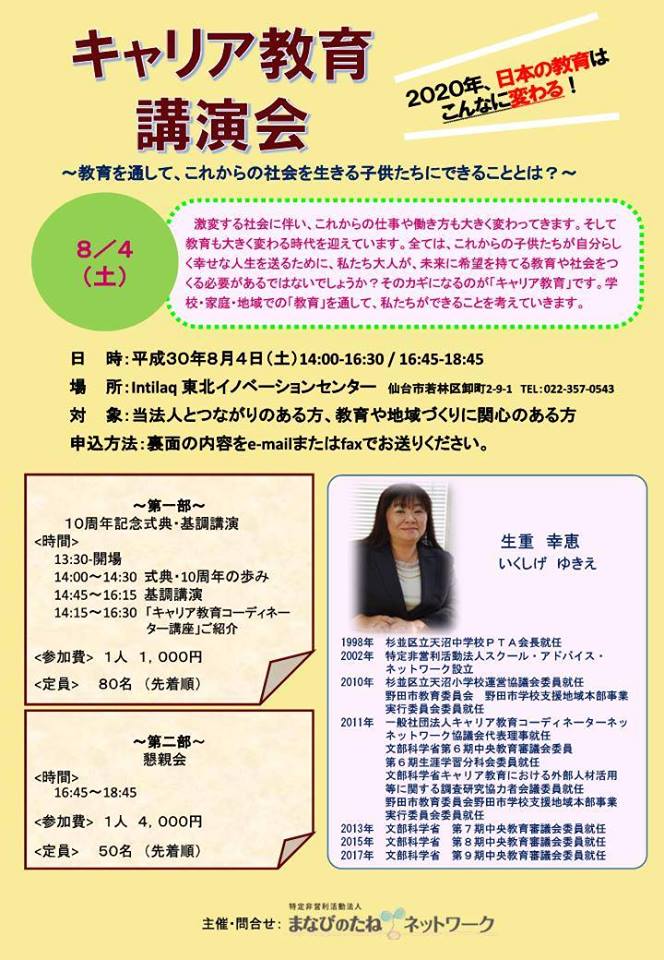 キャリア教育
講演会
2020年、日本の教育は
こんなに変わる！
～教育を通して、これからの社会を生きる子供たちにできることとは？～
8／4
（土）
激変する社会に伴い、これからの仕事や働き方も大きく変わってきます。そして
教育も大きく変わる時代を迎えています。全ては、これからの子供たちが自分らし
く幸せな人生を送るために、私たち大人が、未来に希望を持てる教育や社会をつ
くる必要があるではないでしょうか？そのカギになるのが「キャリア教育」です。学
校・家庭・地域での「教育」を通して、私たちができることを考えていきます。
日　時：平成30年8月4日（土）14:00-16:30 / 16:45-18:45
場　所：Intilaq 東北イノベーションセンター　仙台市若林区卸町2-9-1　TEL：022-357-0543
対　象：当法人とつながりのある方、教育や地域づくりに関心のある方
申込方法：裏面の内容をe-mailまたはfaxでお送りください。
～第一部～
10周年記念式典・基調講演
<時間>
13:30-開場
14:00～14:30 式典・10周年の歩み
14:45～16:15 基調講演
14:15～16:30 「キャリア教育コーディネー
ター講座」ご紹介
<参加費> 1人 1,000円
<定員> 80名 （先着順）
～第二部～
懇親会
<時間>
16:45～18:45
<参加費> 1人 4,000円
<定員> 50名 （先着順）
生重　幸恵
いくしげ　ゆきえ
1998年 杉並区立天沼中学校PTA会長就任
2002年 特定非営利活動法人スクール・アドバイス・
ネットワーク設立
2010年 杉並区立天沼小学校運営協議会委員就任
野田市教育委員会　野田市学校支援地域本部事業
実行委員会委員就任
2011年 一般社団法人キャリア教育コーディネーターネッ
ネットワーク協議会代表理事就任
文部科学省第6期中央教育審議会委員
第6期生涯学習分科会委員就任
文部科学省キャリア教育における外部人材活用
等に関する調査研究協力者会議委員就任
野田市教育委員会野田市学校支援地域本部事業
実行委員会委員就任
2013年 文部科学省　第7期中央教育審議会委員就任
2015年 文部科学省　第8期中央教育審議会委員就任
2017年 文部科学省　第9期中央教育審議会委員就任
特定非営利活動法人
主催・問合せ： まなびのたねネットワーク